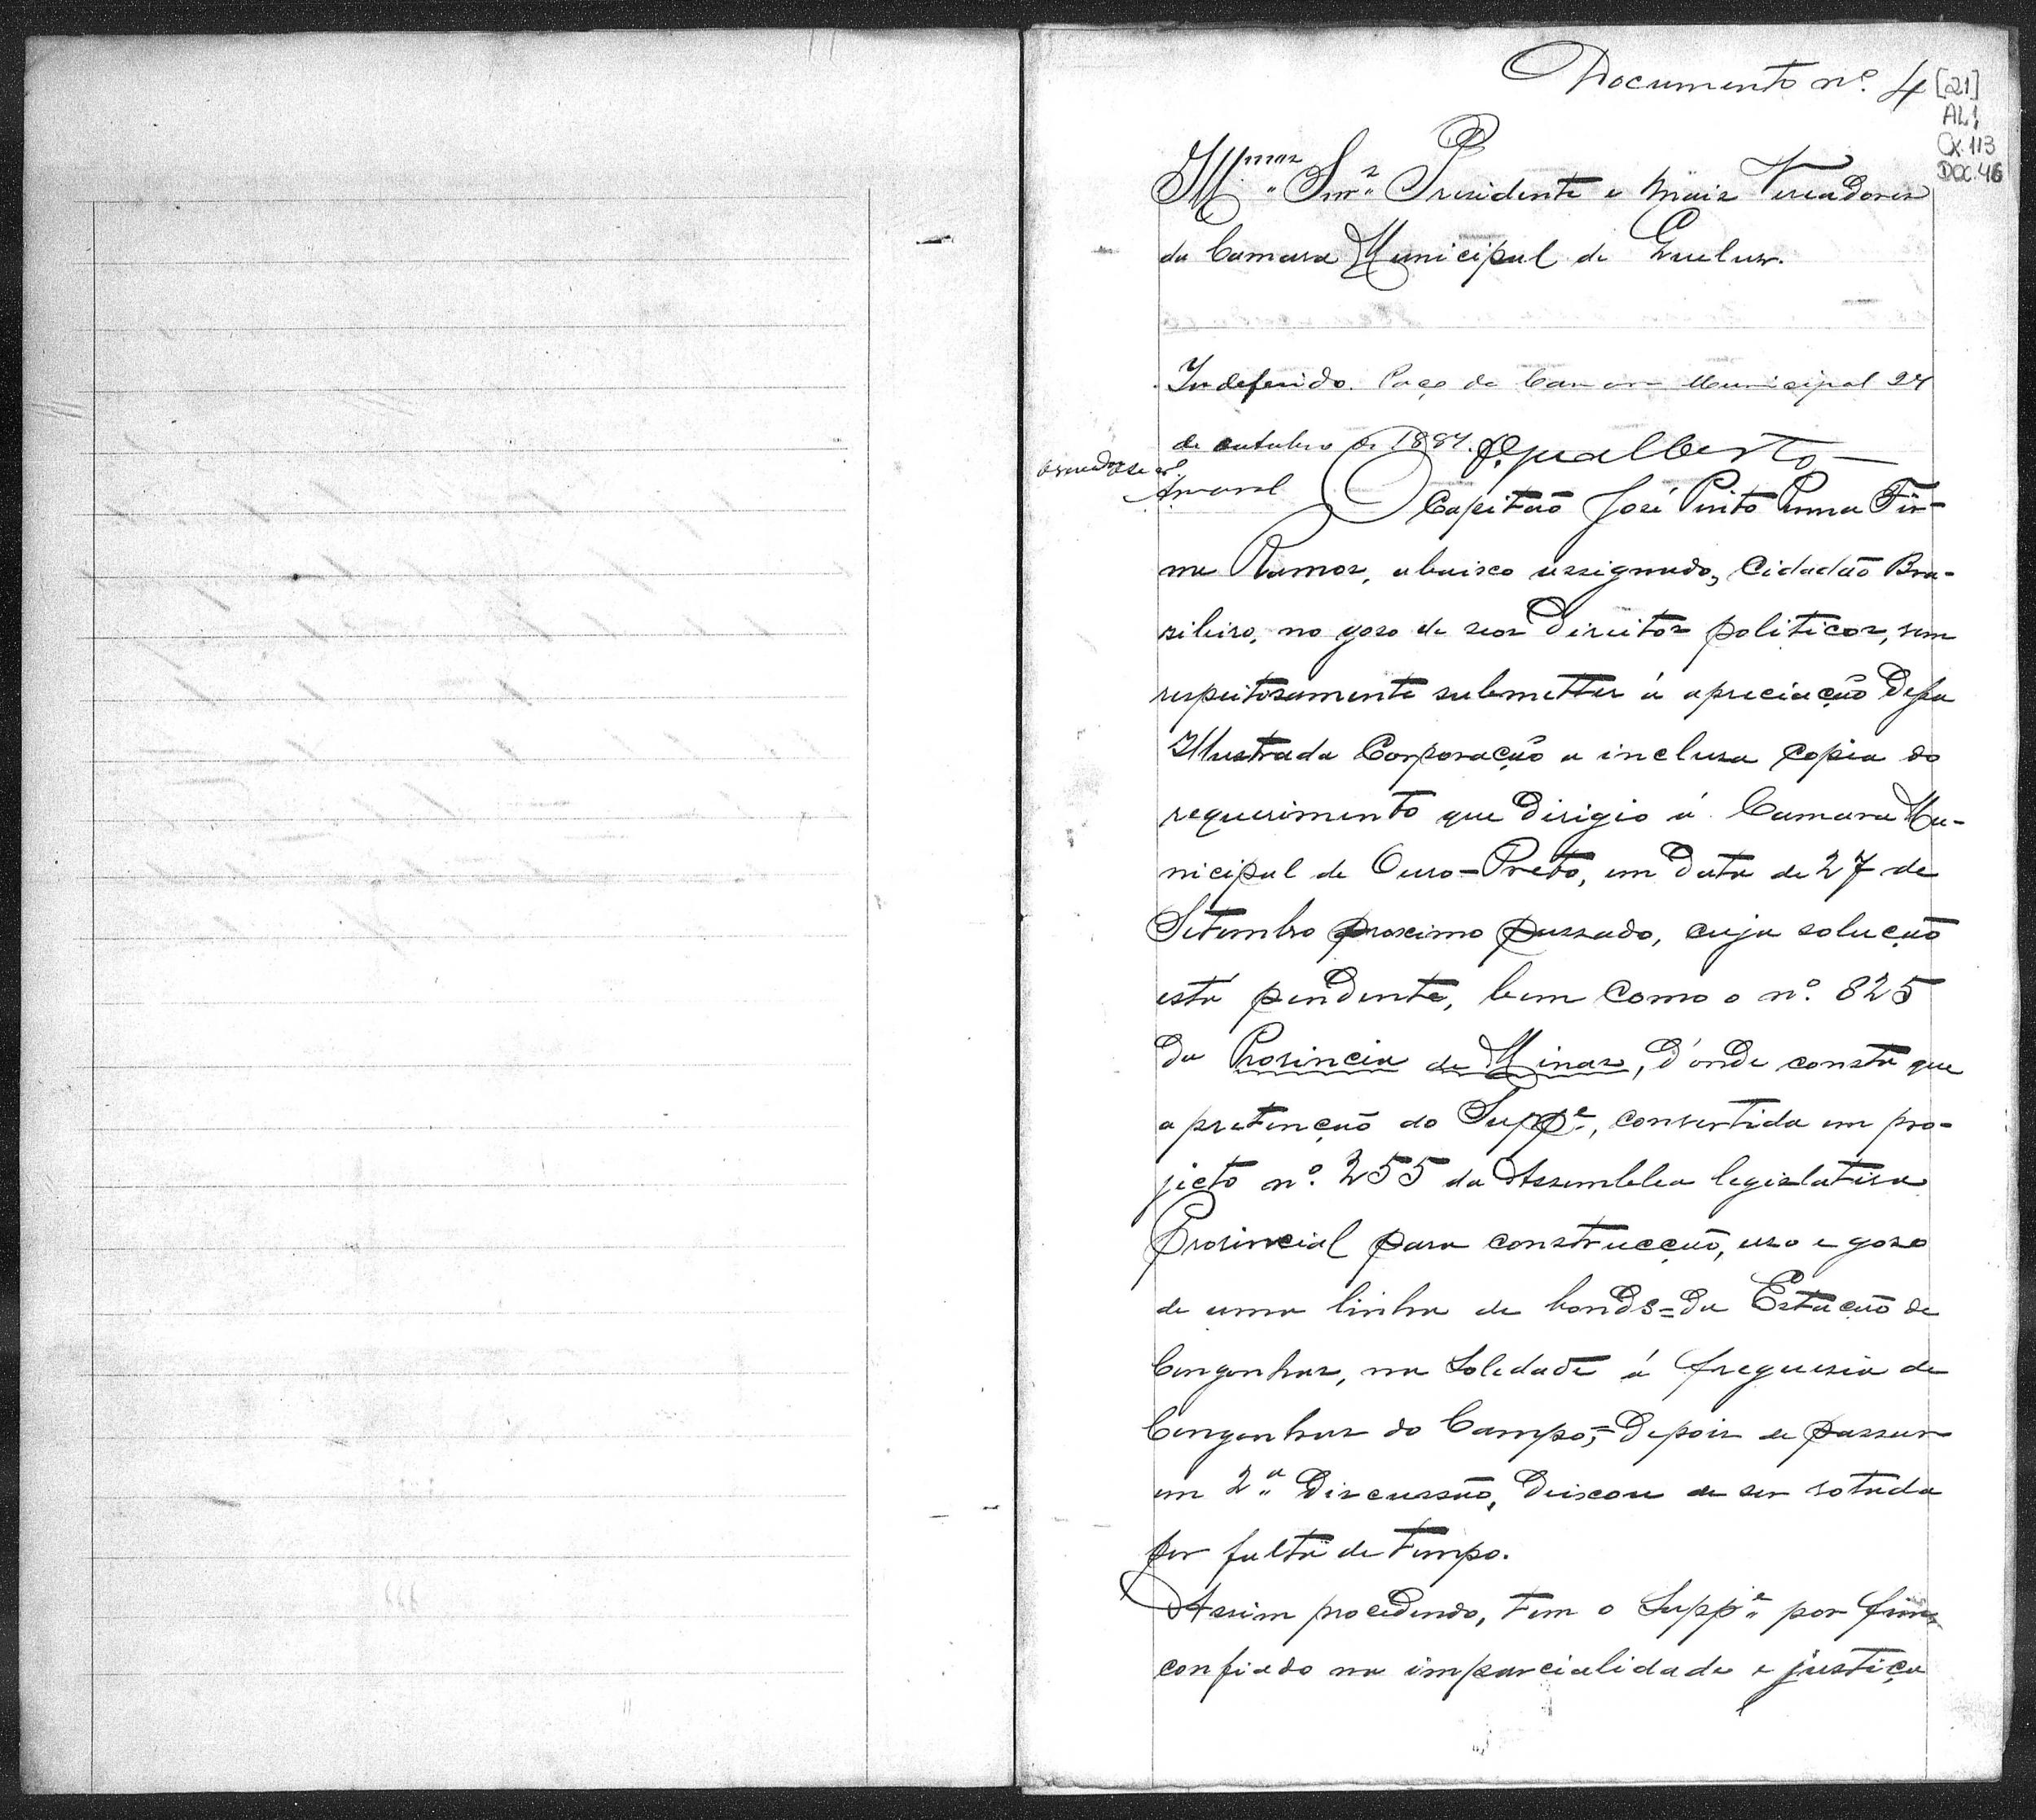 Documento nº. 4
[21]
AL1
CX.113
DOC.46
Illmos. Snrs. Presidente e mais Vereadores
da Camara Municipal de Queluz.
Indeferido. Paço da Camara Municipal 24
de outubro de 1887.
Amaral
O Capitão José Pinto Penna Fir-
me Ramos, abaixo assignado, Cidadão Bra-
sileiro, no goso de seos Direitos politicos, vem
respeitosamente submetter á apreciação Dessa
Illustrada Corporação a inclusa copia do
requerimento que dirigio á Camara Mu-
nicipal de Ouro-Preto, em data de 27 de
Setembro proximo passado, cuja solução
está pendente, bem como o nº. 825
da Provincia de Minas, d'onde consta que
a pretenção do Suppe., convertida em pro-
jecto nº. 255 da Assemblea legislativa
Provincial para construcção, uso e goso
de uma linha de bonds=da Estação de
Congonhas, na Soledade á freguesia de
Congonhas do Campo,=depois de passar
em 2ª. Discussão, deixou de ser votada
por falta de tempo.
Assim procedendo, tem o Suppe. por fim,
confiado na imparcialidade e justiça